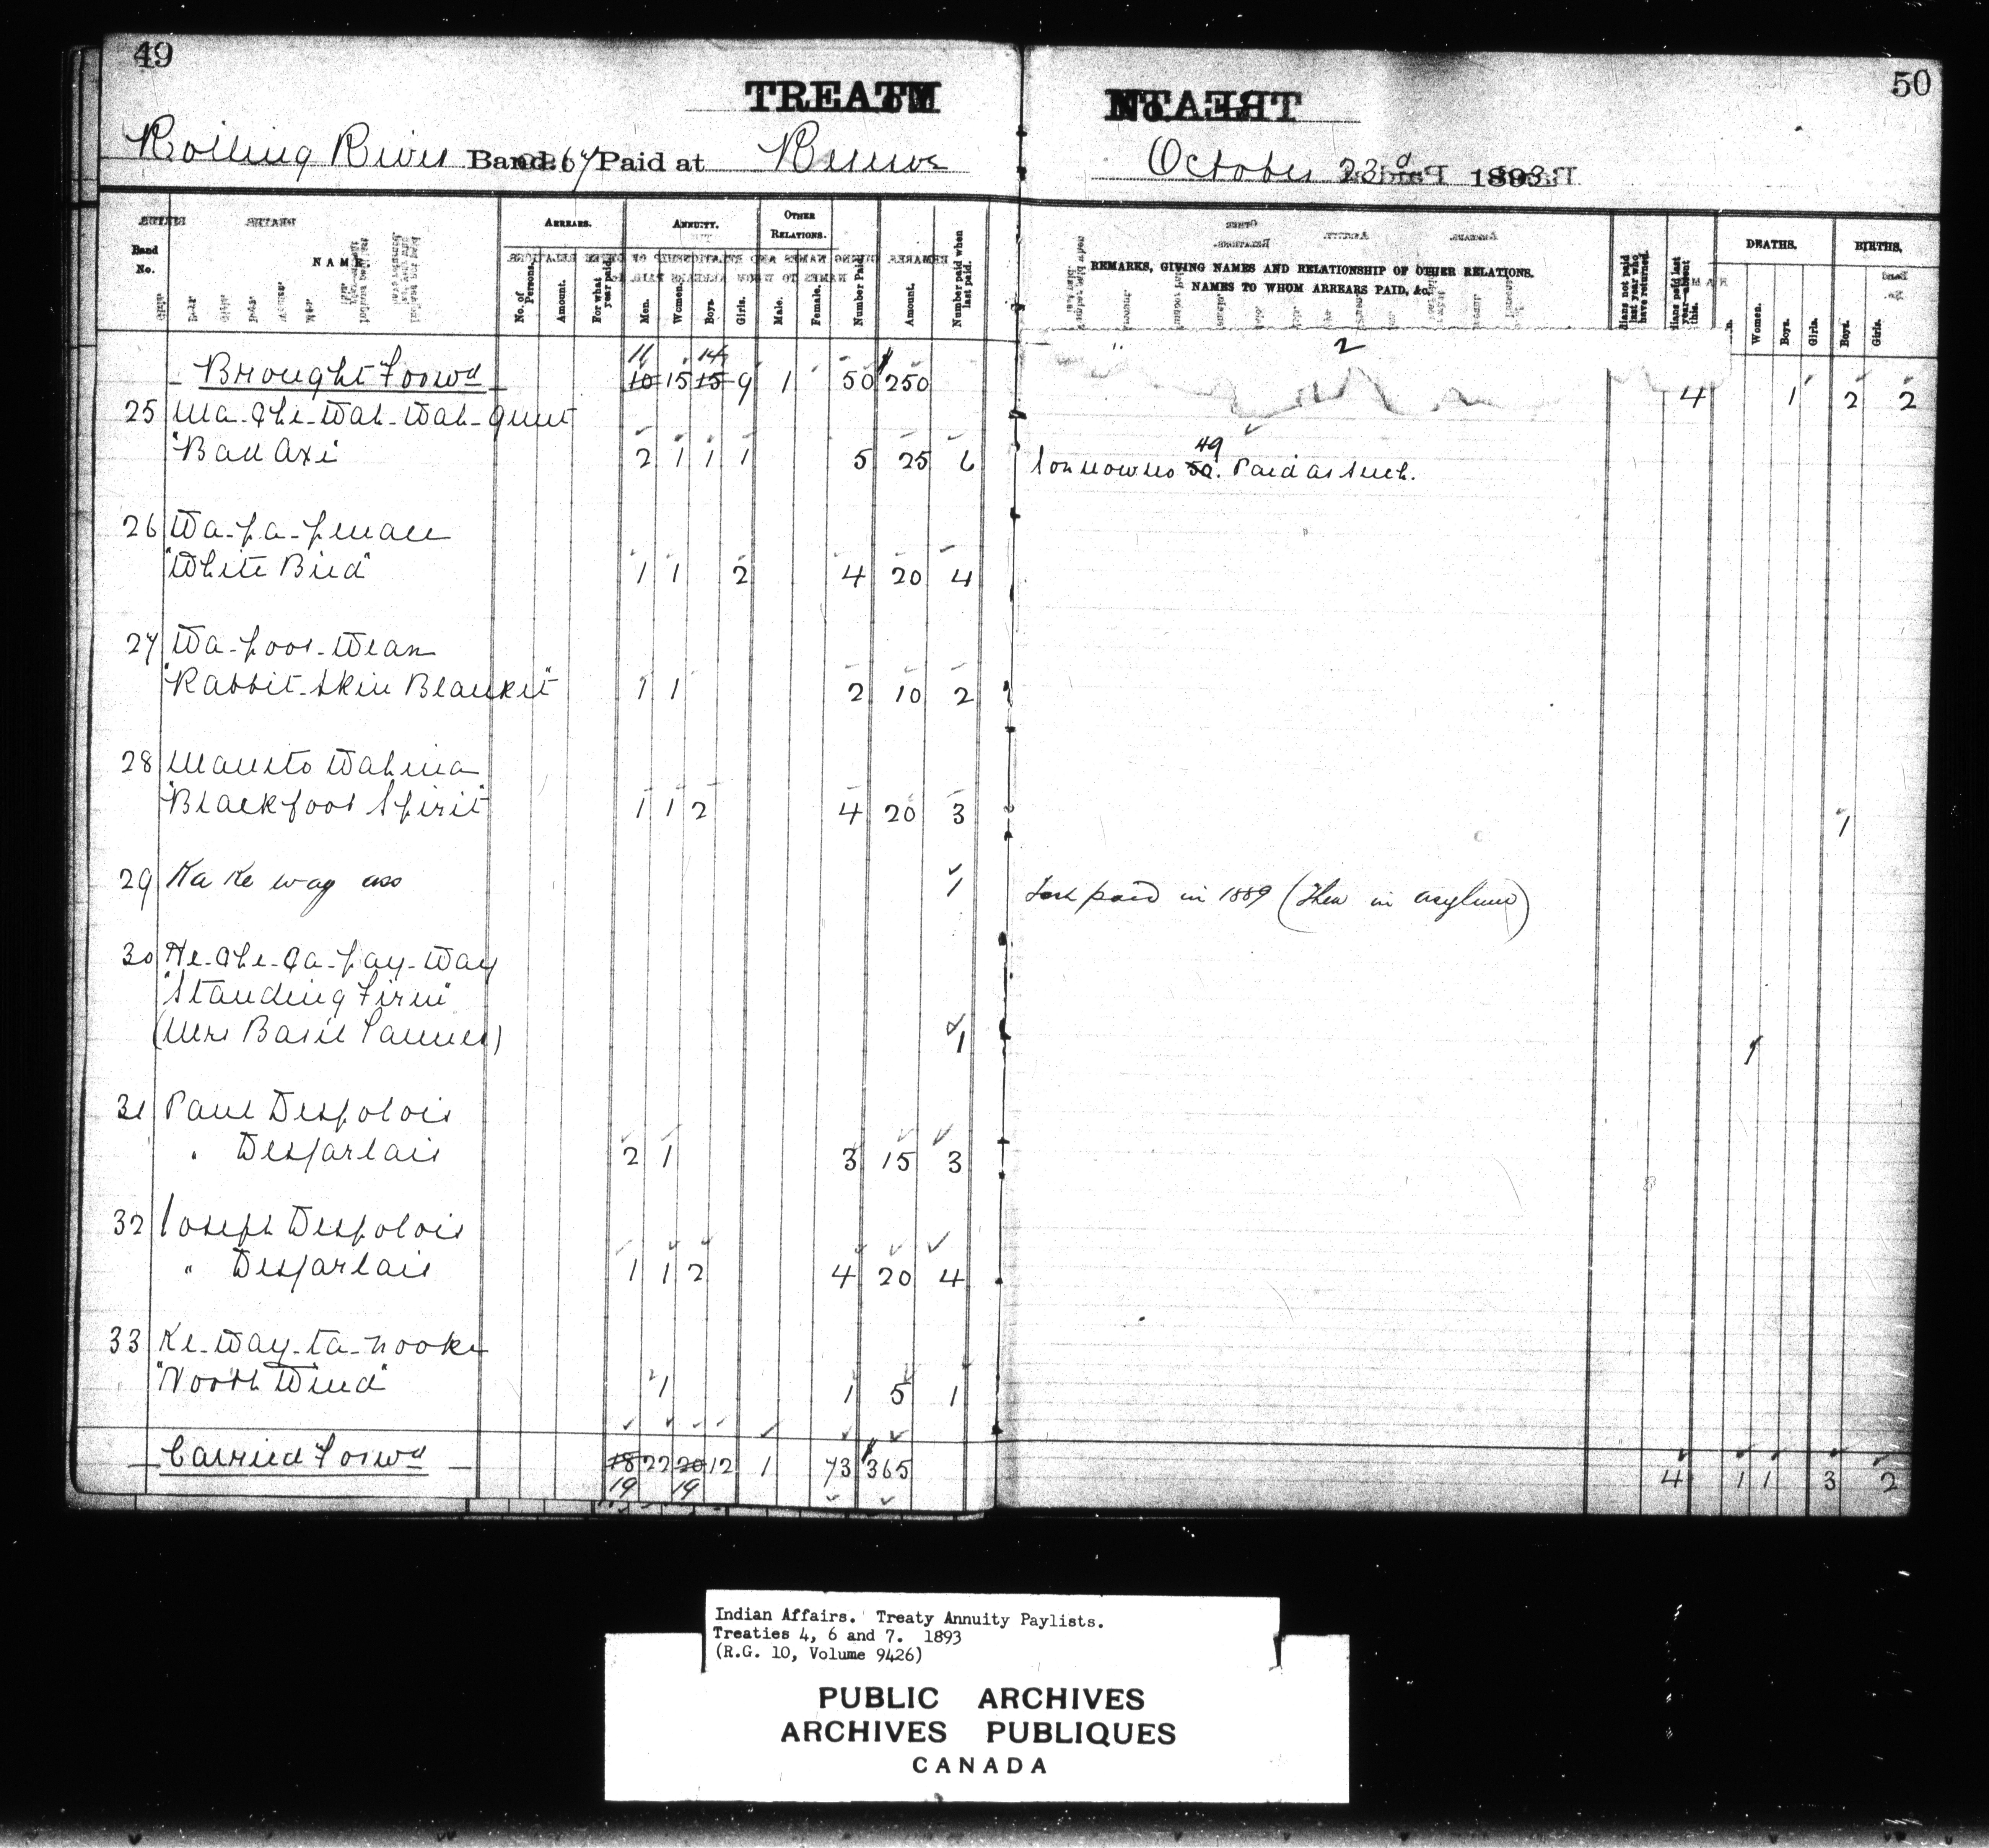 49
50
TREATY
No.
Rolling River Band. 67 Paid at Reserve
October 23d 1893
Band No.
NAME
ARREARS.
No. of Persons.
Amount.
For what year paid.
ANNUITY.
Men.
Women.
Boys.
Girls.
OTHER RELATIONS.
Male.
Female.
Number Paid.
Amount.
Number paid when last paid.
REMARKS, GIVING NAMES AND RELATIONSHIP OF OTHER RELATIONS.
NAMES TO WHOM ARREARS PAID, &c.
dians not paid last year who have returned.
dians paid last year—absent this.
DEATHS.
Women.
Boys.
Girls.
BIRTHS.
Boys.
Girls.
11 14 2
Brought Forwd 10 15 15 9 1 50 250 4 1 2 2
25 Ma-che-Wah-Wah-quut
"Bad Axe" 2 1 1 1 5 25 6 Son now No 50. 49 Paid as such.
26 Wa-pa-penace
"White Bird" 1 1 2 4 20 4
27 Wa-poos-Wean
"Rabbit-Skin Blanket" 1 1 2 10 2
28 Manito Wahma
"Blackfoot Spirit" 1 1 2 4 20 3 1
29 Ka ke way ass 1 Last paid in 1889 (Then in asylum)
30 Ne-che-ca-pay-Way
"Standing Firm"
(Mrs Basil Tanner) 1 1
31 Paul Despolois
" Desjarlais 2 1 3 15 3
32 Joseph Despolois
" Desjarlais 1 1 2 4 20 4
33 Ke-Way-ta-nooke
"North Wind" 1 1 5 1
Carried Forwd 18 22 20 12 1 73 365 4 1 1 3 2
19 19
Indian Affairs. Treaty Annuity Paylists.
Treaties 4, 6 and 7. 1893
(R.G. 10, Volume 9426)
PUBLIC ARCHIVES
ARCHIVES PUBLIQUES
CANADA